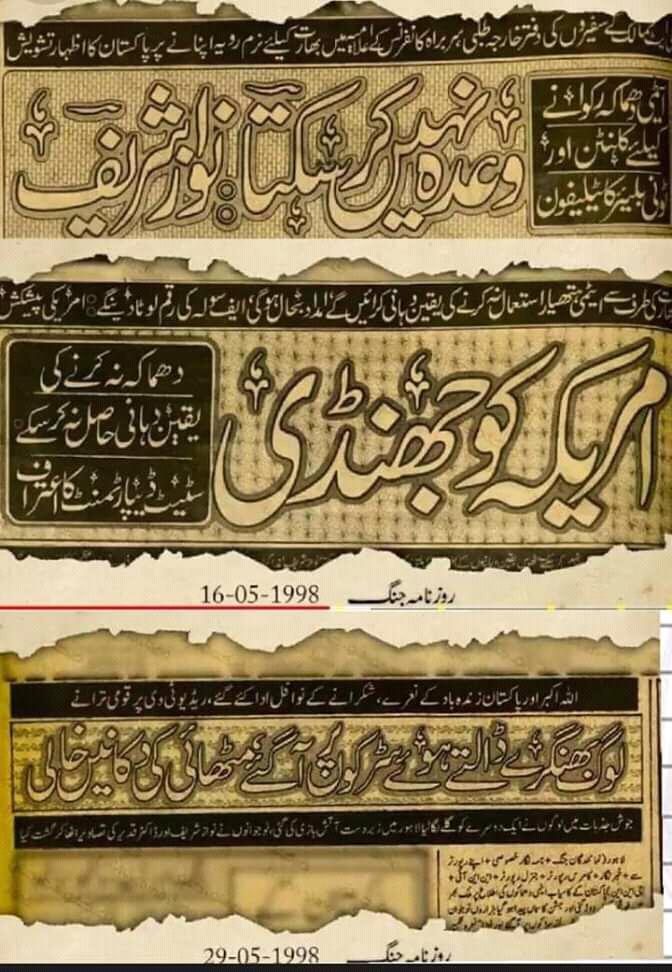 کے سفیروں کی دفتر خارجہ طلبی، سربراہ کانفرنس کے اعلامیہ میں بھارت کیلئے نرم رویہ اپنانے پر پاکستان کا اظہار تشویش
وعدہ نہیں کر سکتا: نواز شریف
ایٹمی دھماکہ رکوانے
کیلئے کلنٹن اور
ٹونی بلیئر کا ٹیلیفون
کی طرف سے ایٹمی ہتھیار استعمال نہ کرنے کی یقین دہانی کرائیں گے، امداد بحال ہوگی، ایف سولہ کی رقم لوٹا دینگے: امریکی پیشکش
امریکہ کو جھنڈی
دھماکہ نہ کرنے کی
یقین دہانی حاصل نہ کر سکے
سٹیٹ ڈیپارٹمنٹ کا اعتراف
روزنامہ جنگ 16-05-1998
اللہ اکبر اور پاکستان زندہ باد کے نعرے، شکرانے کے نوافل ادا کئے گئے، ریڈیو ٹی وی پر قومی ترانے
لوگ بھنگڑے ڈالتے ہوئے سڑکوں پر آ گئے، مٹھائی کی دکانیں خالی
جوش جذبات میں لوگوں نے ایک دوسرے کو گلے لگا لیا، لاہور میں زبردست آتش بازی کی گئی، نوجوانوں نے نواز شریف اور ڈاکٹر قدیر کی تصاویر اٹھا کر گشت کیا
لاہور (نمائندگان جنگ + نامہ نگار خصوصی + اپنے رپورٹر
سے + خبر نگار + کامرس رپورٹر + جنرل رپورٹر + این این آئی +
پاکستان کے کامیاب ایٹمی دھماکوں کی اطلاع پر ملک بھر
اور جشن کا سماں پیدا ہو گیا ہزاروں نوجوان
روزنامہ جنگ 29-05-1998